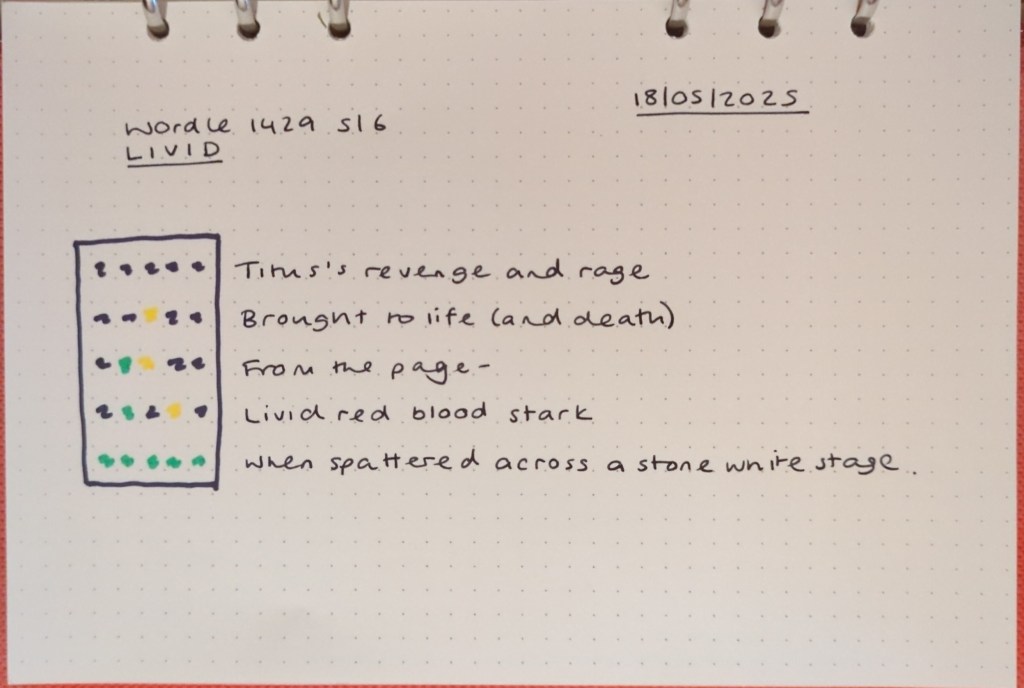 18/05/2025
Wordle 1429 5/6
LIVID
Titus's revenge and rage
Brought to life (and death)
From the page-
Livid red blood stark
when spattered across a stone white stage.